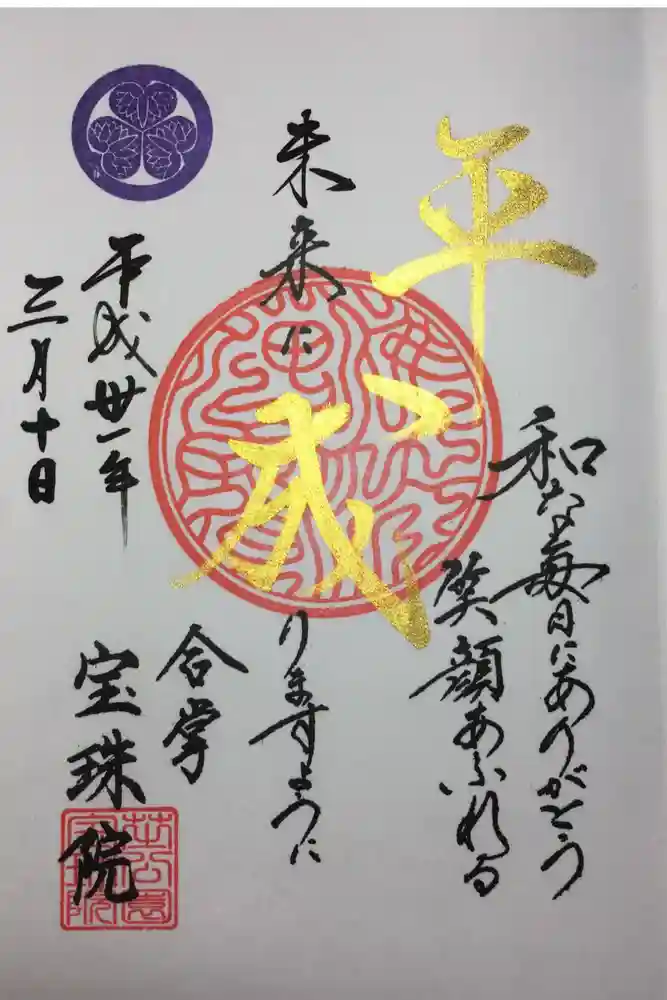 平和な毎日にありがとう
笑顔あふれる
未来に成りますように
合掌
平成卅一年
三月十日
宝珠院
芝公園
宝珠院